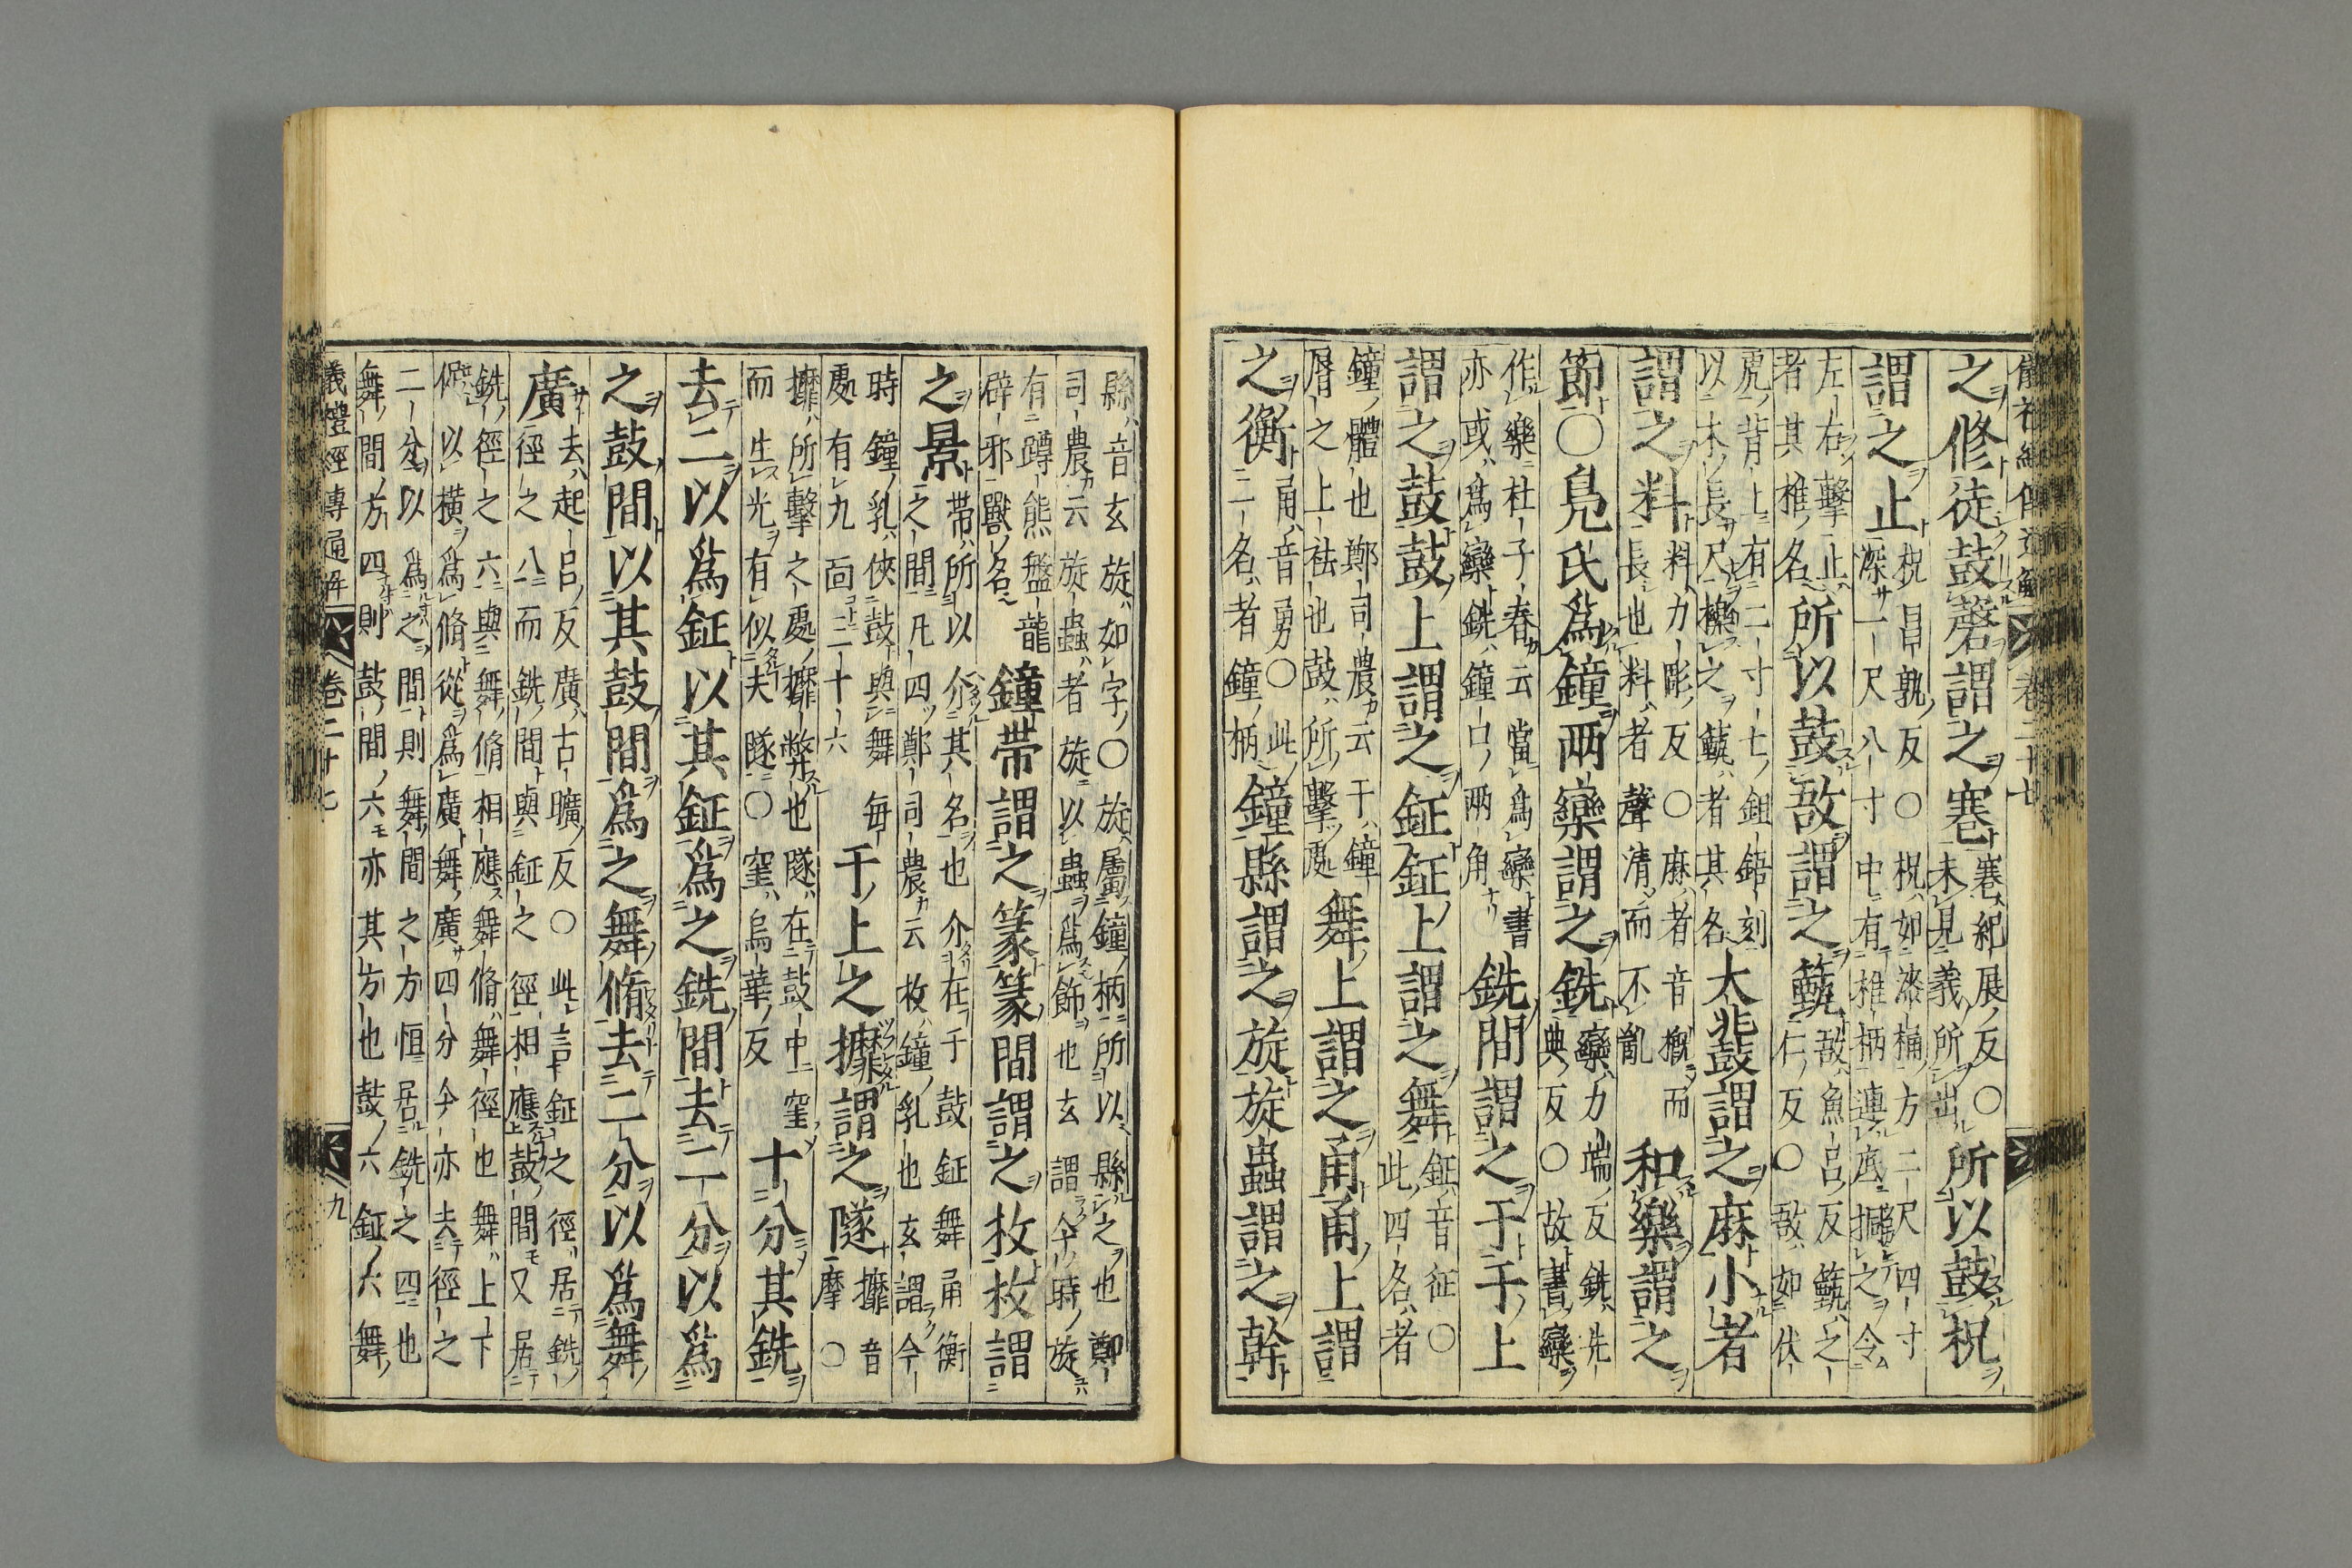 儀禮經傳通解 卷二十七
之修徒鼓磬謂之寋寋紀展反○未見義所出所以鼓柷
謂之止柷昌孰反○柷如漆桶方二尺四寸深一尺八寸中有椎柄連底撼之令
左右擊止者其椎名所以鼓敔謂之籈敔魚呂反籈之仁反○敔如伏
虎背上有二十七鉏鋙刻以木長尺櫟之籈者其名大鼗謂之麻小者
謂之料料力彫反○麻者音概而長也料者聲清而不亂和樂謂之
節○鳧氏爲鐘兩欒謂之銑欒力端反銑先典反○故書欒
作樂杜子春云當爲欒書亦或爲欒銑鐘口兩角銑間謂之于于上
謂之鼓鼓上謂之鉦鉦上謂之舞鉦音征○此四名者
鐘體也鄭司農云于鐘脣之上袪也鼓所擊處舞上謂之甬甬上謂
之衡甬音勇○此二名者鐘柄鐘縣謂之旋旋蟲謂之幹
縣音玄旋如字○旋屬鐘柄所以縣之也鄭司農云旋蟲者旋以蟲爲飾也玄謂今時旋
有蹲熊盤龍辟邪獸名鐘帶謂之篆篆間謂之枚枚謂
之景帶所以介其名也介在于鼓鉦舞甬衡之間凡四鄭司農云枚鐘乳也玄謂今
時鐘乳俠鼓與舞每處有九面三十六于上之攠謂之隧攠音摩○
攠所擊之處攠弊也隧在鼓中窐而生光有似夫隧○窐烏華反十分其銑
去二以爲鉦以其鉦爲之銑間去二分以爲
之鼓間以其鼓間爲之舞脩去二分以爲舞
廣去起呂反廣古曠反○此言鉦之徑居銑徑之八而銑間與鉦之徑相應鼓間又居
銑徑之六與舞脩相應舞脩舞徑也舞上下促以橫爲脩從爲廣舞廣四分今亦去徑之
二分以爲之間則舞間之方恒居銑之四也
舞間方四則鼓間六亦其方也鼓六鉦六舞
儀禮經傳通解 卷二十七 九